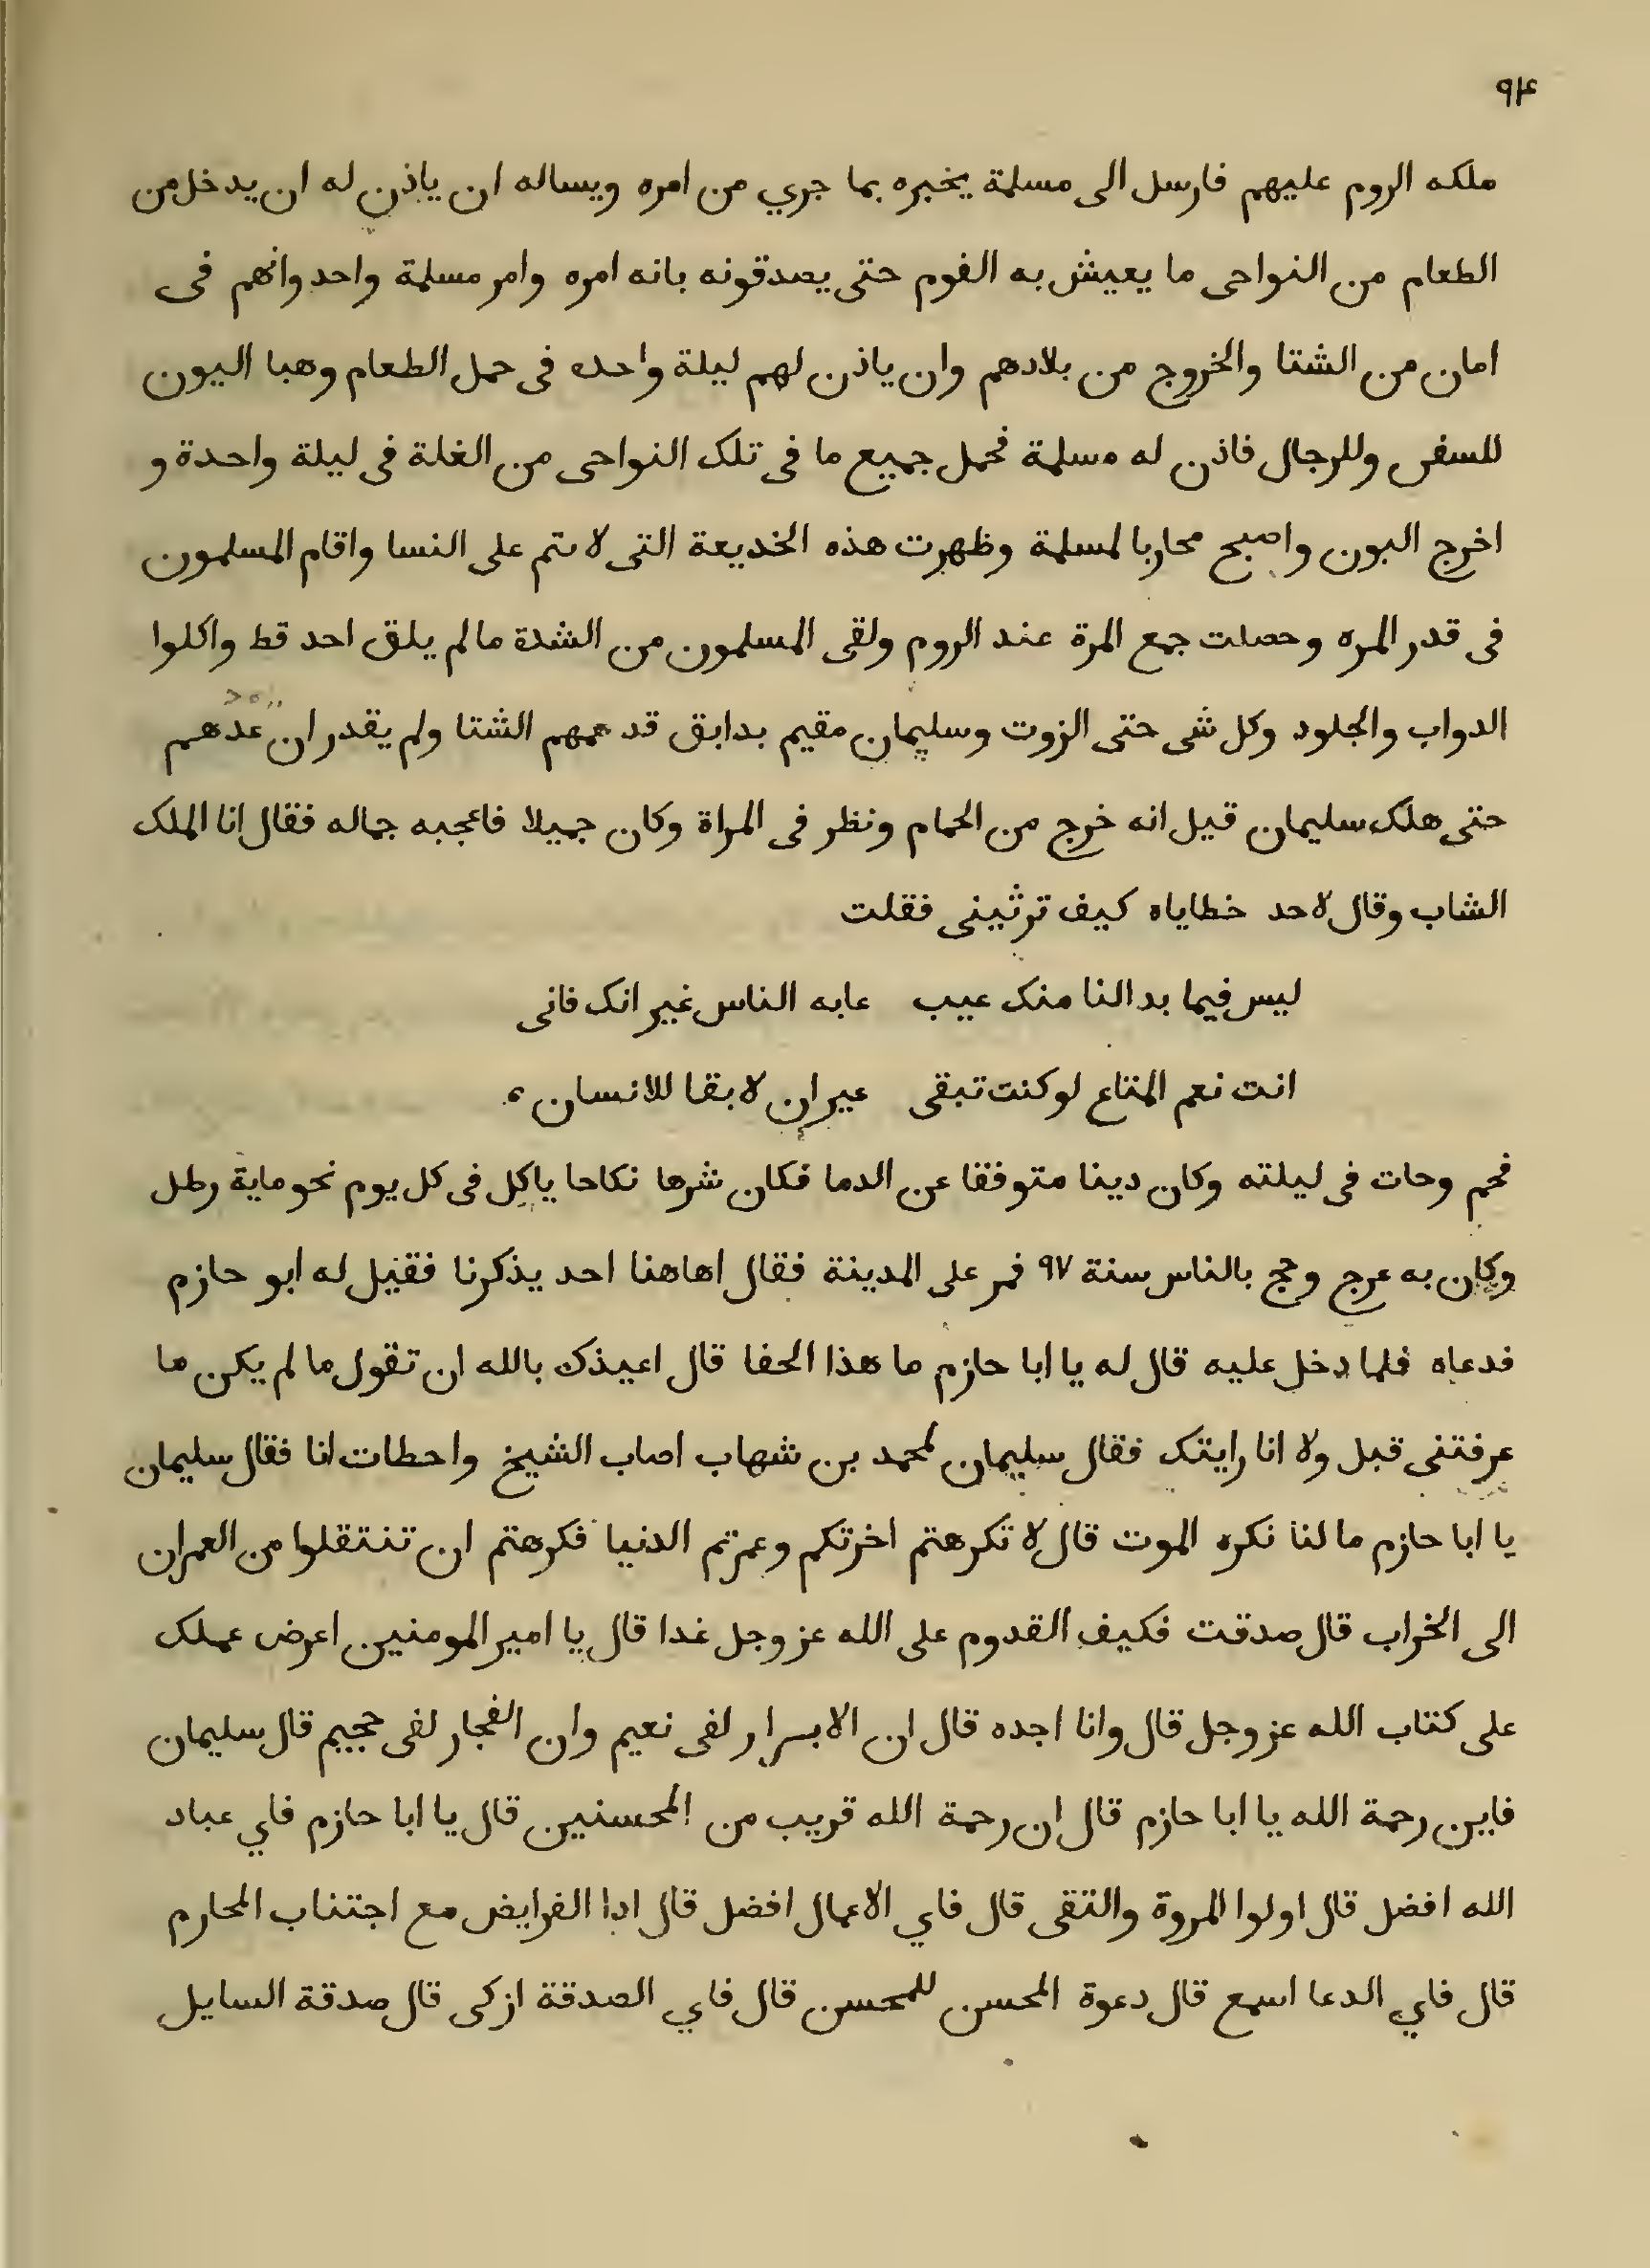 ٩٤
ملكه الروم عليهم فارسل الى مسلمة يخبره بما جري من امره ويساله ان ياذن له ان يدخل من
الطعام من النواحى ما يعيش به القوم حتى يصدقونه بانه امره وامر مسلمة واحد وانهم فى
امان من الشتا والخروج من بلادهم وان ياذن لهم ليلة واحده فى حمل الطعام وهبا اليون
للسفن وللرجال فاذن له مسلمة فحمل جميع ما فى تلك النواحى من الغلة فى ليلة واحدة و
اخرج اليون واصبح محاربا لمسلمة وظهرت هذه الخديعة التى لا تتم على النسا واقام المسلمون
فى قدر المره وحصلت جمع المرة عند الروم ولقى المسلمون من الشدة ما لم يلق احد قط واكلوا
الدواب والجلود وكل شى حتى الزوت وسليمان مقيم بدابق قد عمهم الشتا ولم يقدر ان عدهم
حتى هلك سليمان قيل انه خرج من الحمام ونظر فى المراة وكان جميلا فاعجبه جماله فقال انا الملك
الشاب وقال لاحد خطاياه كيف ترثينى فقلت
ليس فيما بدا لنا منك عيب عابه الناس غير انك فانى
انت نعم المتاع لو كنت تبقى عير ان لا بقا للانسان
فحم وحات فى ليلته وكان دينا متوقفا عن الدما فكان شرها نكاحا ياكل فى كل يوم نحو ماية رطل
وكان به عرج وحج بالناس سنة ٩٧ فمر على المدينة فقال اهاهنا احد يذكرنا فقيل له ابو حازم
فدعاه فلما دخل عليه قال له يا ابا حازم ما هذا الحفا قال اعيذك بالله ان تقول ما لم يكن ما
عرفتنى قبل ولا انا رايتك فقال سليمان لمحمد بن شهاب اصاب الشيخ واحطات انا فقال سليمان
يا ابا حازم ما لنا نكره الموت قال لا تكرهتم اخرتكم وعمرتم الدنيا فكرهتم ان تنتقلوا من العمران
الى الخراب قال صدقت فكيف القدوم على الله عز وجل غدا قال يا امير المومنين اعرض عملك
على كتاب الله عز وجل قال وانا اجده قال ان الابرار لفى نعيم وان الفجار لفى جحيم قال سليمان
فاين رحمة الله يا ابا حازم قال ان رحمة الله قريب من المحسنين قال يا ابا حازم فاي عباد
الله افضل قال اولوا المروة والتقى قال فاي الاعمال افضل قال ادا الفرايض مع اجتناب المحارم
قال فاي الدعا اسمع قال دعوة المحسن للمحسن قال فاي الصدقة ازكى قال صدقة السايل